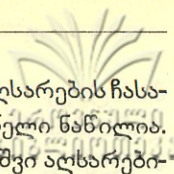 ღსარების ჩასა-
ელი ნაწილია.
შვი აღსარები-